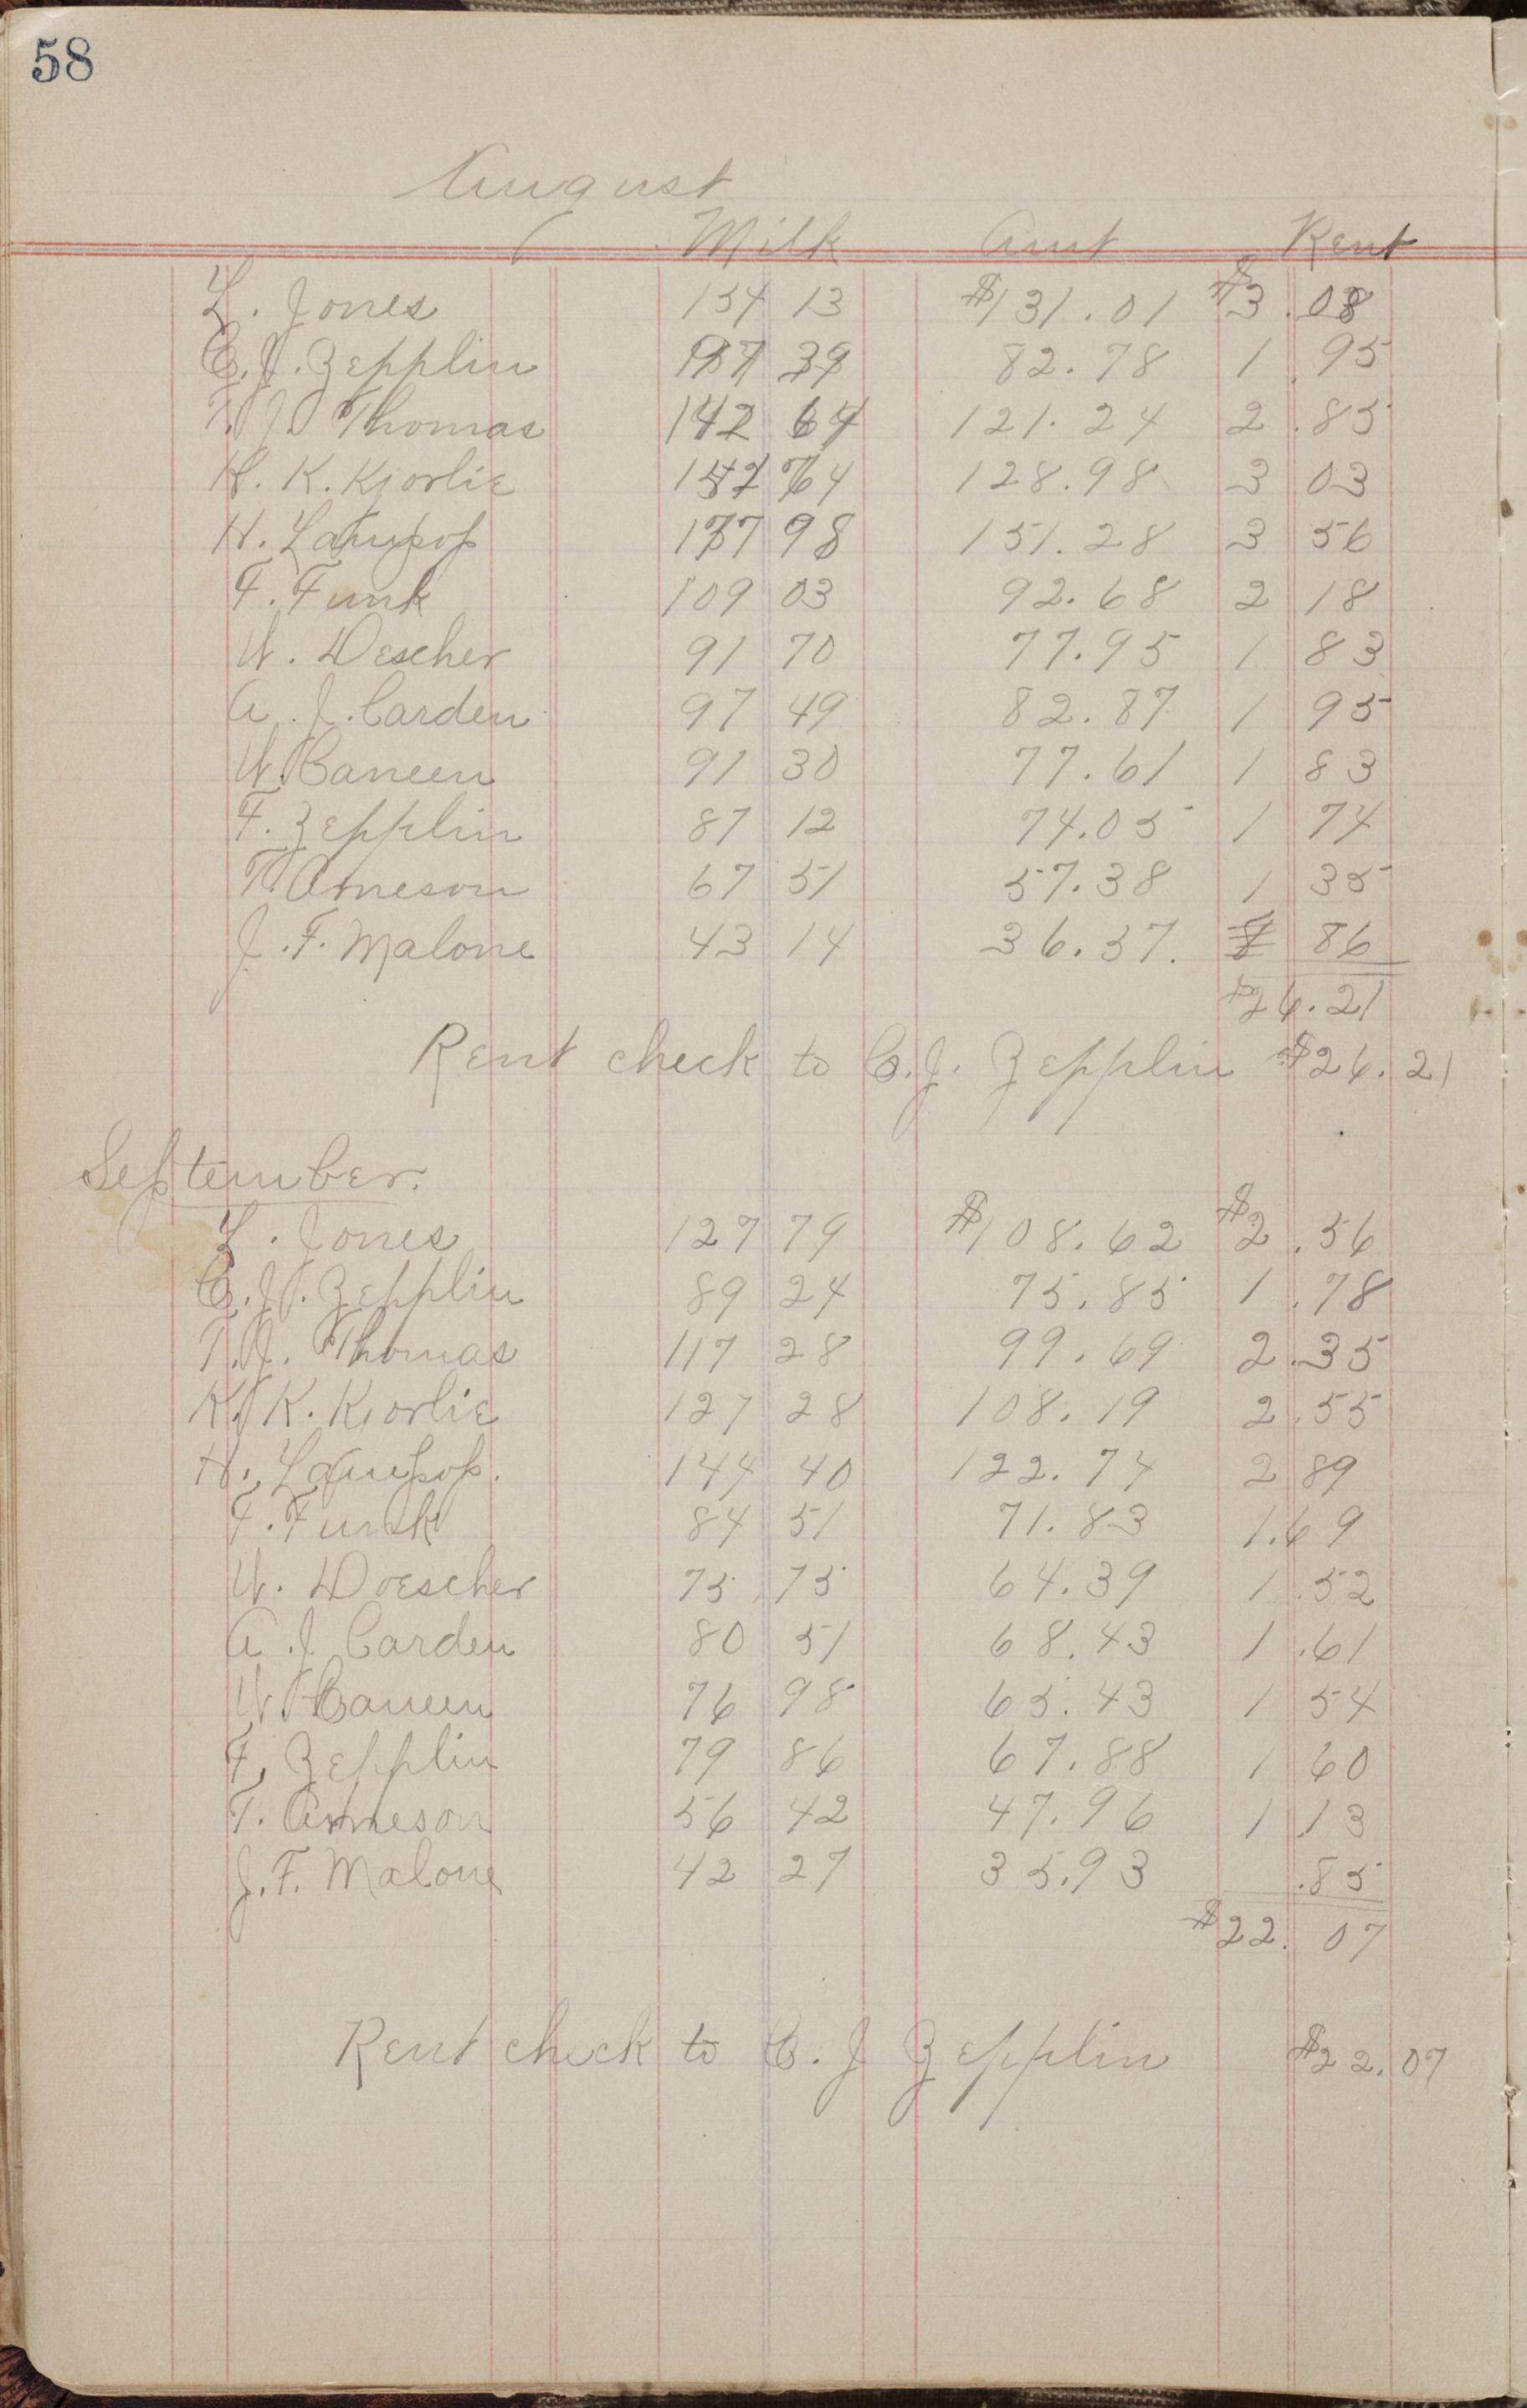 58
August
Milk Amt Rent
L. Jones 154 13 $131.01 $3.08
C. J. Zepplin 97 39 82.78 1.95
T. J. Thomas 142 64 121.24 2.85
K. K. Kjorlie 151 74 128.98 3 03
H. 177 98 151.28 3 56
F. Funk 109 03 92.68 2 18
W. Descher 91 70 77.95 1 83
A. J. Carden 97 49 82.87 1 95
W. Caneen 91 30 77.61 1 83
F. Zepplin 87 12 74.05 1 74
T. Arneson 67 51 57.38 1 35
J. F. Malone 43 14 36.37. 86
$26.21
Rent check to C. J. Zepplin $26.21
September.
L. Jones 127 79 $108.62 $2.56
C. J. Zepplin 89 24 75.85 1.78
T. J. Thomas 117 28 99.69 2.35
K. K. Kjorlie 127 28 108.19 2.55
H. 144 40 122.74 2 89
F. Funk 84 51 71.83 1.69
W. Doescher 75 75 64.39 1.52
A. J Carden 80 51 68.43 1.61
W. Caneen 76 98 65.43 1 54
F. Zepplin 79 86 67.88 1 60
T. Arneson 56 42 47.96 1 13
J. F. Malone 42 27 35.93 .85
$22.07
Rent check to C. J Zepplin $22.07